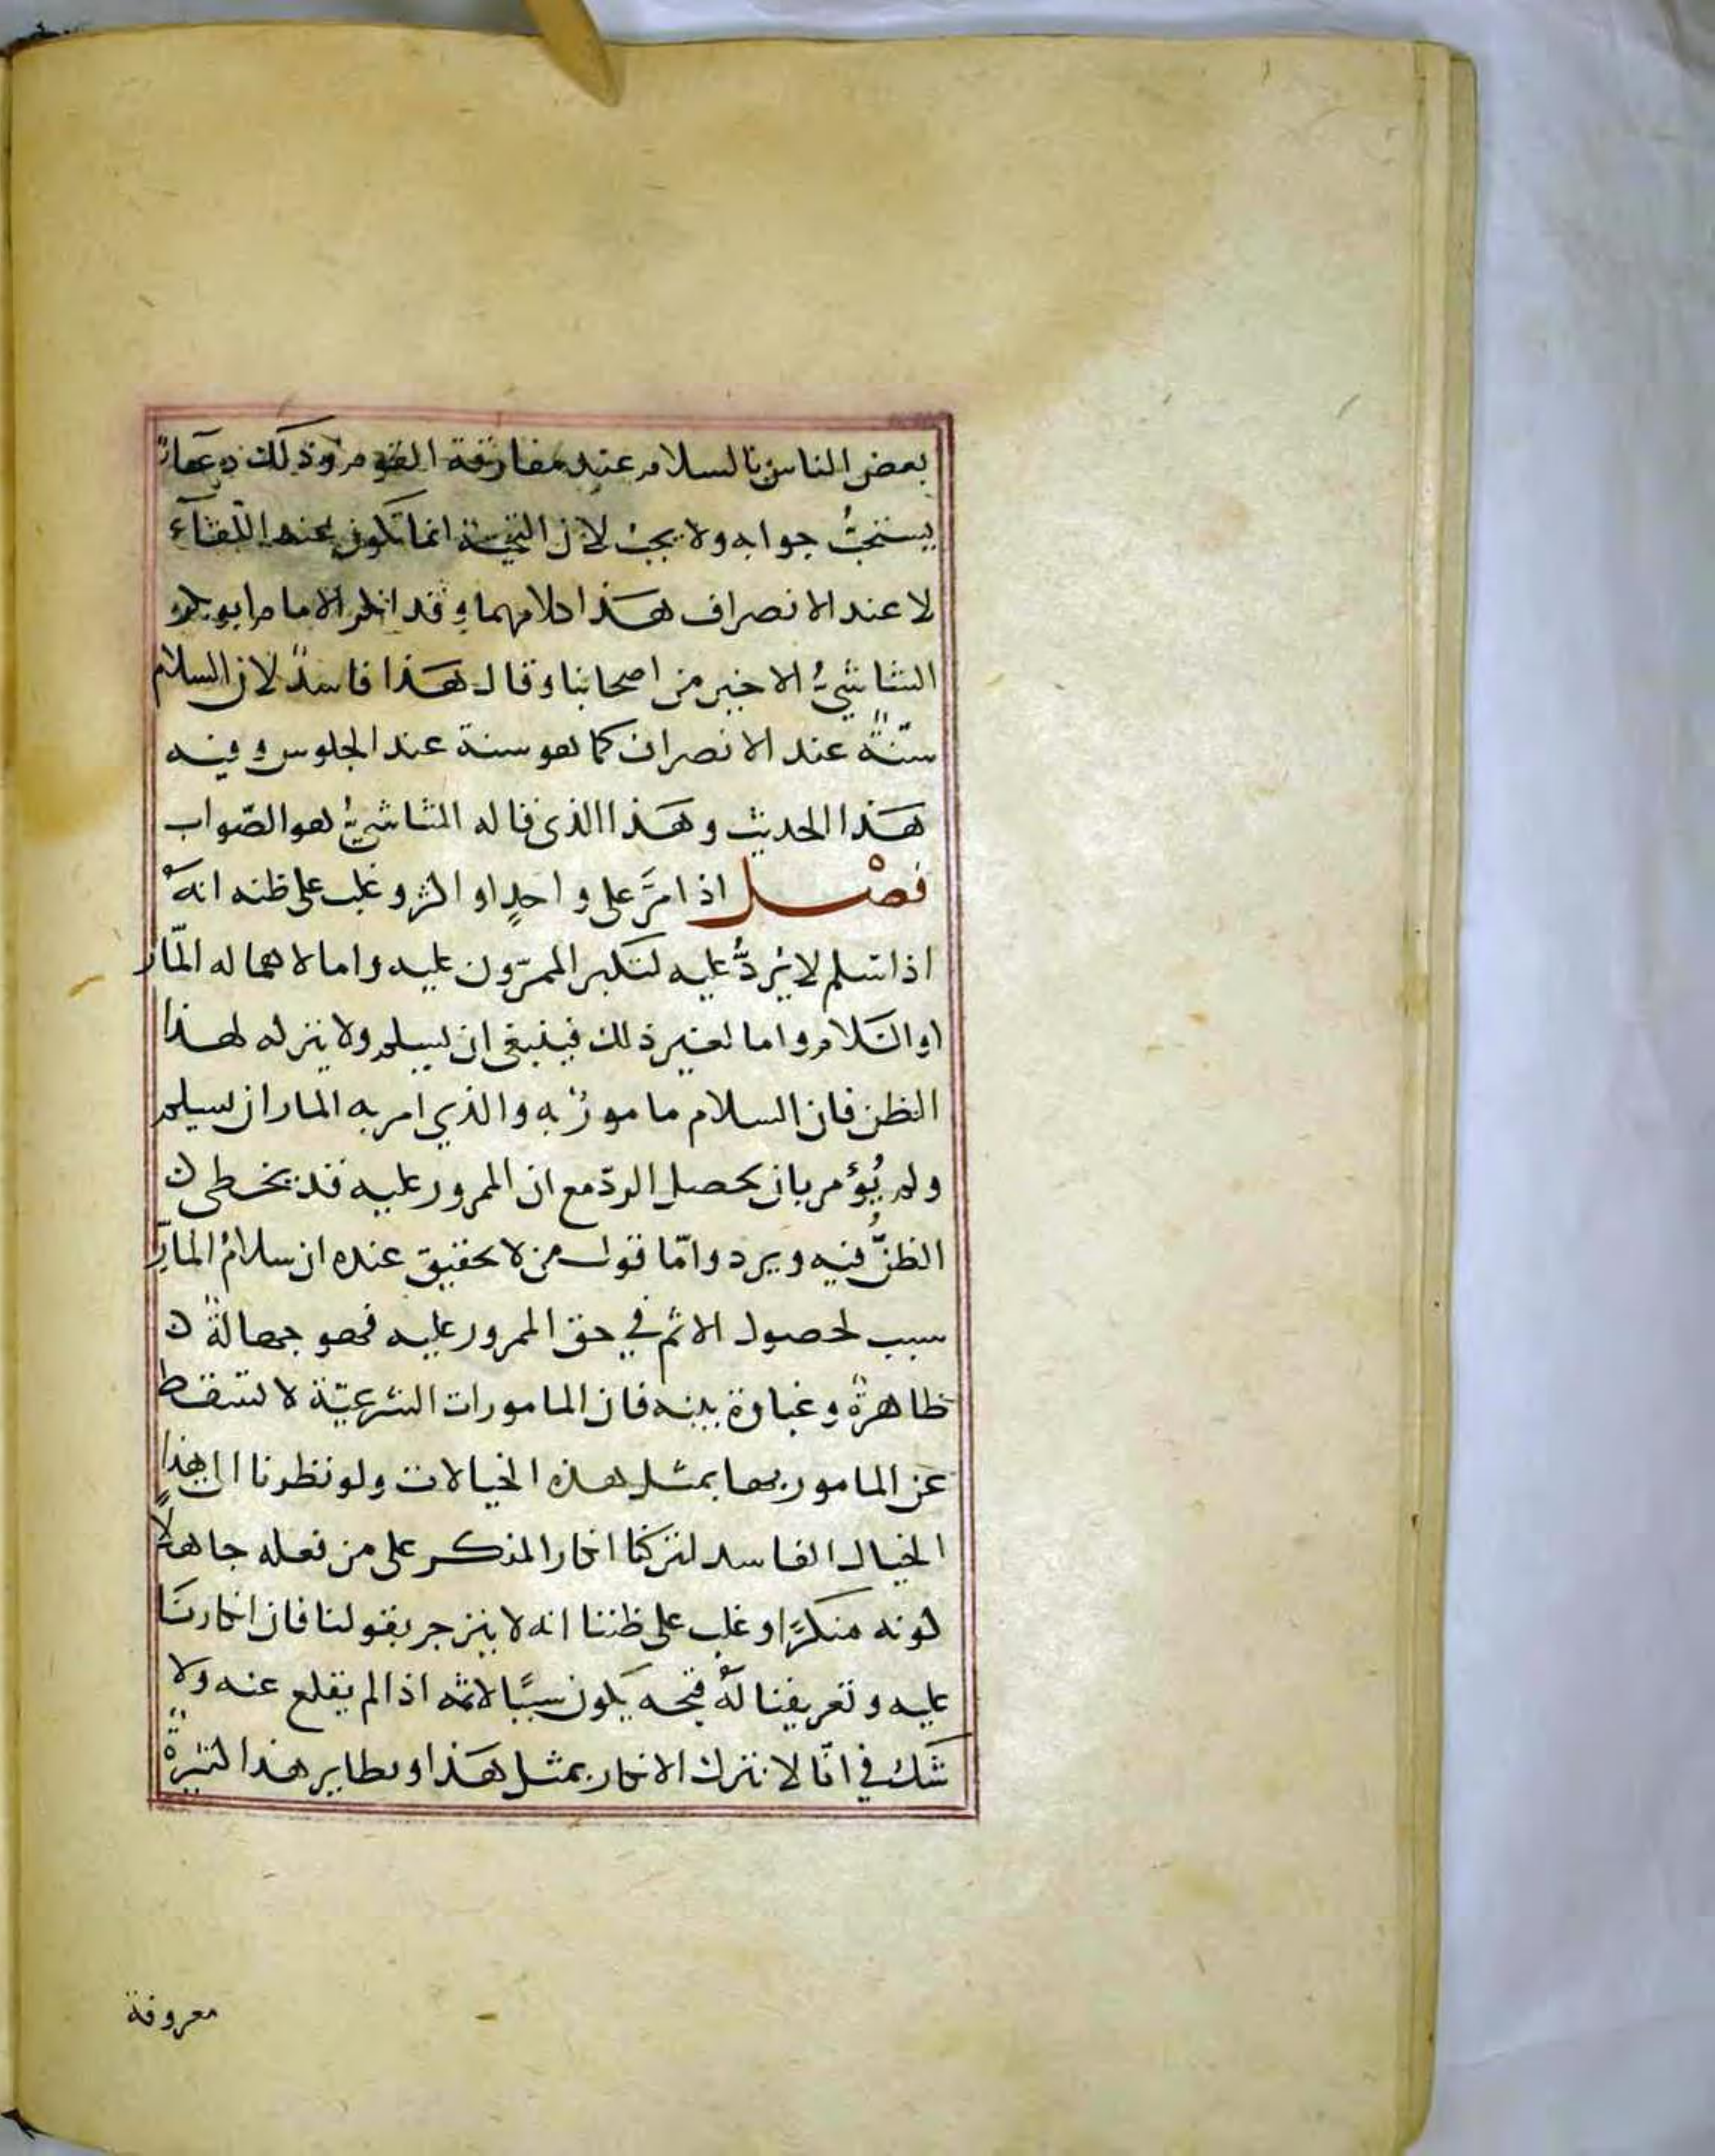 بعض الناس بالسلام عند مفارقة القوم وذلك دعاء
يستحبُّ جوابه ولا يجب لان التحية انما تكون عند اللّقآء
لا عند الانصراف هَذا كلامهما وقد انكر الامام ابو بكر
الشاشيُّ الاخير من اصحابنا وقال هَذا فاسدٌ لان السلام
سنّةٌ عند الانصراف كما هو سنة عند الجلوس وفيه
هَذا الحديث وهَذا الذى قاله الشاشيُّ هو الصّواب
فصْل اذا مرَّ على واحدٍ او اكثر وغلب على ظنه انهُ
اذا سلم لا يردُّ عليه لتكبر الممرّون عليه واما لاهماله المّار
او السّلام واما لغير ذلك فينبغى ان يسلم ولا يتركه لهذا
الظن فان السلام مامورٌ به والذي امر به المار ان يسلم
ولم يُؤمر بان يحصل الردّ مع ان الممرور عليه قد يخطى ن
الظنُّ فيه ويرد وامّا قول من لا تحقيق عنده ان سلامُ المارّ
سبب لحصول الاثم في حق الممرور عليه فهو جهالةٌ ن
ظاهرةٌ وغباوة بينه فان المامورات الشرعيّة لا تسقط
عن المامور بها بمثل هذه الخيالات ولو نظرنا الى هذا
الخيال الفاسد لتركنا انكار المنكر على من فعله جاهلاً
كونه منكرًا وغلب على ظننا انه لا ينزجر بقولنا فان انكارنَا
عليه وتعريفنا لهُ قبحه يكون سببًا لاثمه اذا لم يقلع عنه ولا
شكّ في انّا لا نترك الانكار بمثل هَذا ونظاير هذا كثيرةٌ
معروفة